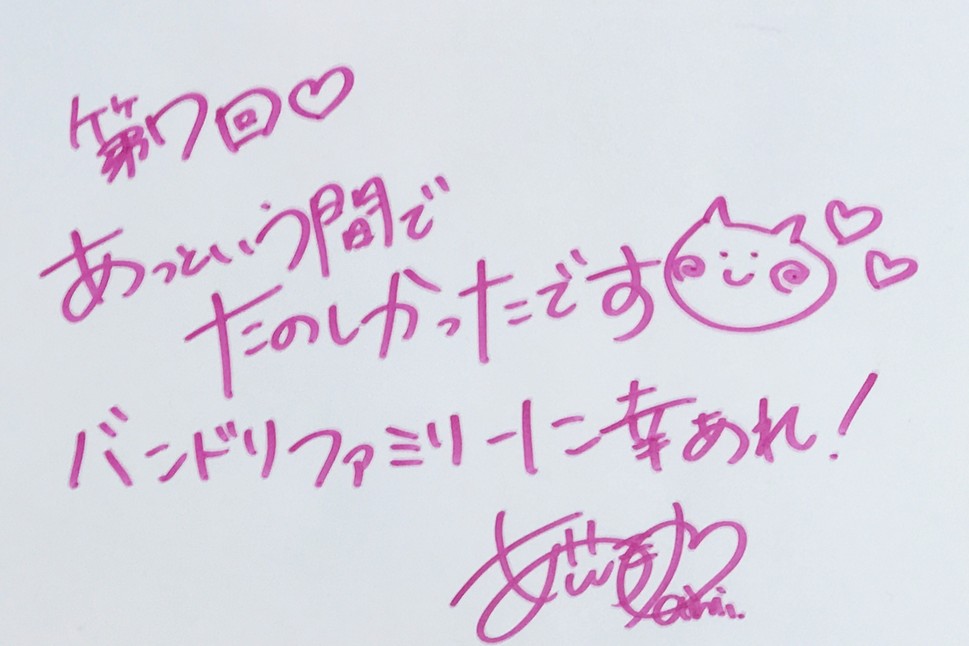 第7回♡
あっという間で
たのしかったです♡♡
バンドリファミリーに幸あれ!